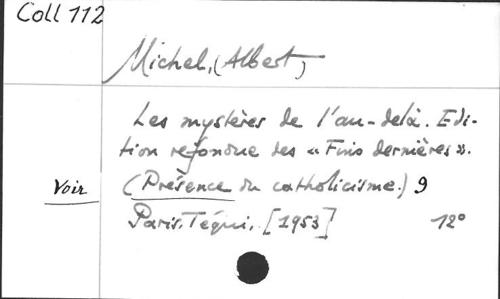 Coll 112
Michel, (Albert)
Les mystères de l'au-delà. Edi-
tion refondue des « Fins dernières ».
Voir (Présence du catholicisme.) 9
Paris, Téqui, [1953] 12°